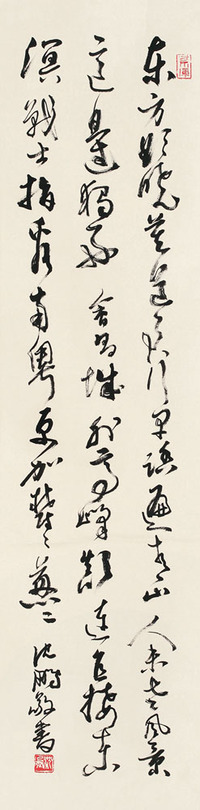 东方欲晓莫道君行早踏遍青山人未老风景
这边独好会昌城外高峰颠连直接东
溟戰士指看南粤更加欝々葱々 沈鹏敬書